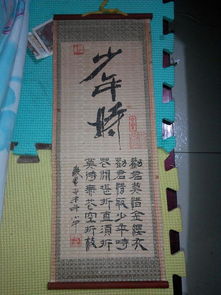 少年時
勸君莫惜金縷衣
勸君惜取少年時
花開堪折直須折
莫待無花空折枝